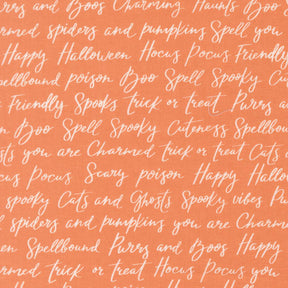 Purrs and Boos Charming Haunts Boo
armed spiders and pumpkins Spell you
Happy Halloween Hocus Pocus Friendly
spellbound poison Boo Spell Spooky
Friendly Spooks trick or treat Purrs a
n Boo Spell Spooky Cuteness Spellbou
sts you are Charmed trick or treat Cats
cus Pocus Scary poison Happy Hallow
spooky Cats and Ghosts Spooky vibes Pu
d spiders and pumpkins you are Charme
een Spellbound Purrs and Boos Happy
armed trick or treat Hocus Pocus you